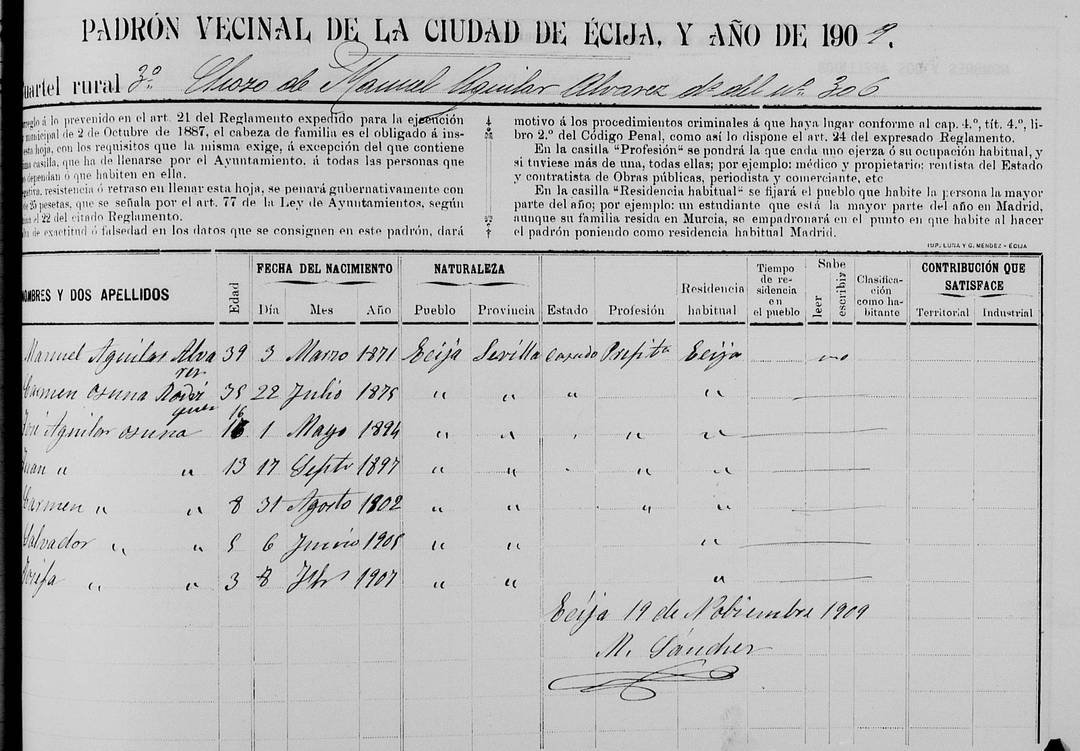 PADRÓN VECINAL DE LA CIUDAD DE ÉCIJA, Y AÑO DE 1909.
uartel rural 3º Choza de Manuel Aguilar Alvarez dº del nº 306
reglo á lo prevenido en el art. 21 del Reglamento expedido para la ejecución
municipal de 2 de Octubre de 1887, el cabeza de familia es el obligado á ins-
esta hoja, con los requisitos que la misma exige, á excepción del que contiene
ma casilla, que ha de llenarse por el Ayuntamiento, á todas las personas que
dependan ó que habiten en ella.
gativa, resistencia ó retraso en llenar esta hoja, se penará gubernativamente con
de 25 pesetas, que se señala por el art. 77 de la Ley de Ayuntamientos, según
el 22 del citado Reglamento.
de exactitud ó falsedad en los datos que se consignen en este padrón, dará
motivo á los procedimientos criminales á que haya lugar conforme al cap. 4.º, tít. 4.º, li-
bro 2.º del Código Penal, como así lo dispone el art. 24 del expresado Reglamento.
En la casilla "Profesión" se pondrá la que cada uno ejerza ó su ocupación habitual, y
si tuviese más de una, todas ellas; por ejemplo: médico y propietario; rentista del Estado
y contratista de Obras públicas, periodista y comerciante, etc
En la casilla "Residencia habitual" se fijará el pueblo que habite la persona la mayor
parte del año; por ejemplo: un estudiante que está la mayor parte del año en Madrid,
aunque su familia resida en Murcia, se empadronará en el punto en que habite al hacer
el padrón poniendo como residencia habitual Madrid.
IMP. LUNA Y G. MÉNDEZ - ÉCIJA
OMBRES Y DOS APELLIDOS Edad FECHA DEL NACIMIENTO Día Mes Año NATURALEZA Pueblo Provincia Estado Profesión Residencia habitual Tiempo de re-sidencia en el pueblo Sabe leer escribir Clasifica-ción como ha-bitante CONTRIBUCIÓN QUE SATISFACE Territorial Industrial
Manuel Aguilar Alvarez 39 3 Marzo 1871 Ecija Sevilla Casado Ecija no
Carmen Osuna Rodriguez 35 22 Julio 1875 " " " "
José Aguilar Osuna 16 1 Mayo 1894 " " " " "
Juan " " 13 17 Septe 1897 " " " " "
Carmen " " 8 31 Agosto 1802 " " " "
Salvador " " 5 6 Junio 1905 " " "
Josefa " " 3 8 1907 " " "
Ecija 19 de Nobiembre 1909
M. Sánchez